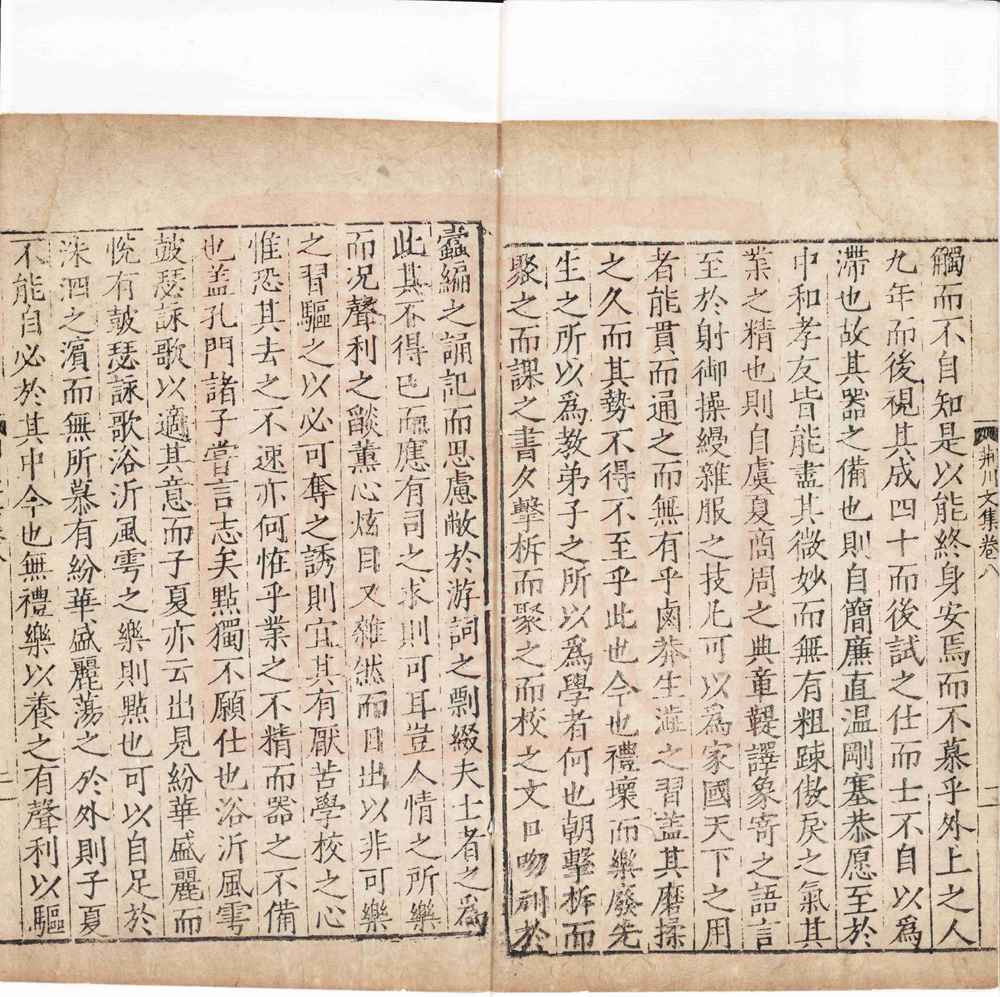 荆川文集卷八
二
觸而不自知是以能終身安焉而不慕乎外上之人
九年而後視其成四十而後試之仕而士不自以爲
滯也故其器之備也則自簡廉直温剛塞恭愿至於
中和孝友皆能盡其微妙而無有粗踈傲戾之氣其
業之精也則自虞夏商周之典童鞮譯象寄之語言
至於射御操縵雜服之技凡可以爲家國天下之用
者能貫而通之而無有乎鹵莽生澁之習蓋其磨揉
之久而其勢不得不至乎此也今也禮壞而樂廢先
生之所以爲教弟子之所以爲學者何也朝擊柝而
聚之而課之書夕擊柝而聚之而校之文口吻刓於
蠹編之誦記而思慮敝於游詞之剽綴夫士者之爲
此其不得已而應有司之求則可耳豈人情之所樂
而况聲利之燄薰心炫目又雜然而日出以非可樂
之習驅之以必可奪之誘則宜其有厭苦學校之心
惟恐其去之不速亦何恠乎業之不精而器之不備
也盖孔門諸子嘗言志矣點獨不願仕也浴沂風雩
鼓瑟詠歌以適其意而子夏亦云出見紛華盛麗而
恱有鼓瑟詠歌浴沂風雩之樂則點也可以自足於
洙泗之濱而無所慕有紛華盛麗蕩之於外則子夏
不能自必於其中今也無禮樂以養之有聲利以驅